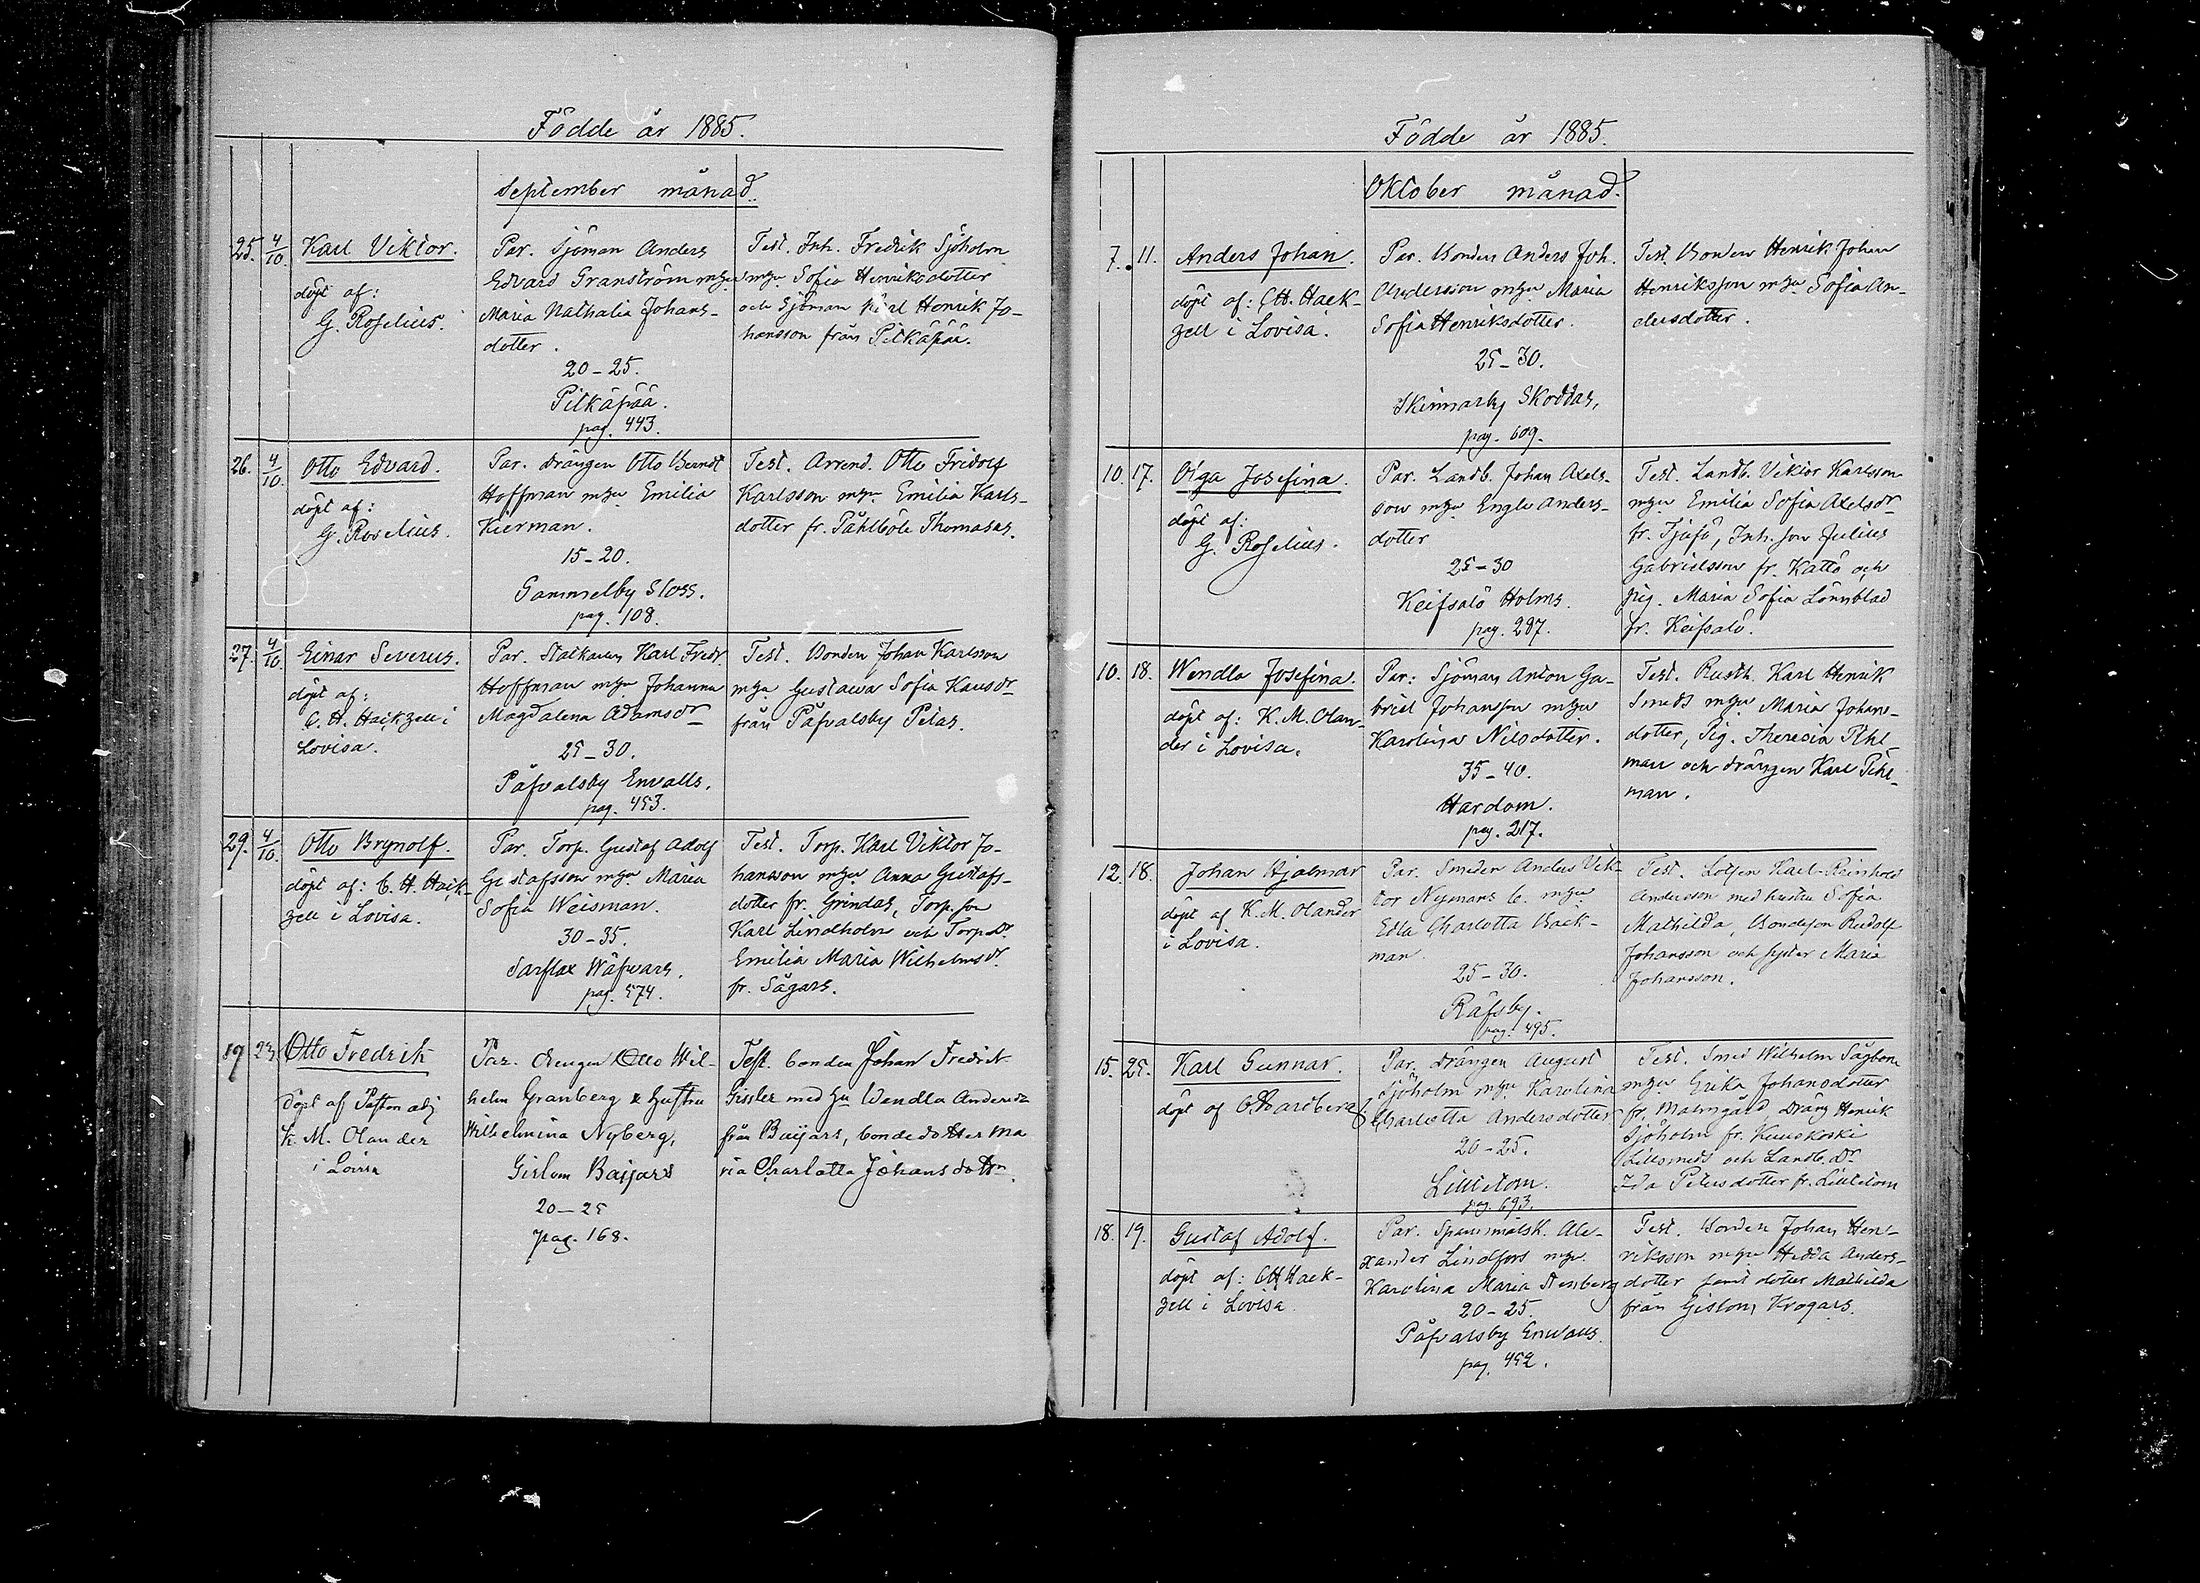 Födde år 1885.
September månad.
25. 4/10. Karl Viktor.
döpt af:
G. Roselius.
Par. Sjöman Anders
Edvard Granström m hu
Maria Nathalia Johans-
dotter.
20-25.
Pitkäpää.
pag. 443.
Test. Inh. Fredrik Sjöholm
m hu Sofia Henriksdotter
och Sjöman Karl Henrik Jo-
hansson från Pitkäpää.
26. 4/10. Otto Edvard.
döpt af:
G. Roselius.
Par. drängen Otto Berndt
Hoffman m hu Emilia
Kierman.
15-20.
Gammelby Sloss.
pag. 108.
Test. Arrend. Otto Fridolf
Karlsson m hu Emilia Karls-
dotter fr. Påhlböle Thomasas.
27. 4/10. Einar Severus.
döpt af:
C. H. Hackzell i
Lovisa.
Par. Statkarlen Karl Fredr.
Hoffman m hu Johanna
Magdalena Adamsdr
25-30.
Påfvalsby Envalls.
pag. 453.
Test. Bonden Johan Karlsson
m hu Gustawa Sofia Karlsdr
från Påfvalsby Petas.
29. 4/10. Otto Brynolf.
döpt af: C. H. Hack-
zell i Lovisa.
Par. Torp. Gustaf Adolf
Gustafsson m hu Maria
Sofia Weisman.
30-35.
Sarflax Wäfvars.
pag. 574.
Test. Torp. Karl Viktor Jo-
hansson m hu Anna Gustafs-
dotter fr. Grindas, Torp. son
Karl Lindholm och Torp. dr
Emilia Maria Wilhelmsdr
fr. Sågars.
19 23 Otto Fredrik
Döpt af Paston adj
K. M. Olander
i Lovisa
Par. drengen Otto Wil-
helm Granberg & hustru
Wilhelmina Nyberg,
Gislom Baijars
20-25
pag. 168.
Test. bonden Johan Fredrik
Gissler med hu Wendla Andersdr
från Baijars, bondedotter Ma
ria Charlotta Johansdotter.
Födde år 1885.
Oktober månad.
7. 11. Anders Johan.
döpt af: CH. Hack-
zell i Lovisa.
Par. Bonden Anders Joh.
Andersson m hu Maria
Sofia Henriksdotter.
25-30.
Skinnarby Skoddas,
pag. 609.
Test. Bonden Henrik Johan
Henriksson m hu Sofia An-
dersdotter.
10. 17. Olga Josefina.
döpt af:
G. Roselius.
Par. Landb. Johan Axels-
son m hu Engla Anders-
dotter
25-30
Keifsalö Holms.
pag. 287.
Test. Landb. Viktor Karlsson
m hu Emilia Sofia Axelsdr
fr. Tjufö, Inh. son Julius
Gabrielsson fr. Kattö och
pig. Maria Sofia Lönnblad
fr. Keifsalö.
10. 18. Wendla Josefina.
döpt af: K. M. Olan-
der i Lovisa.
Par: Sjöman Anton Ga-
briel Johansson m hu
Karolina Nilsdotter.
35-40.
Hardom.
pag. 217.
Test. Rusth. Karl Henrik
Smeds m hu Maria Johans-
dotter, Pig. Theresia Pihl
man och drängen Karl Pihl-
man.
12. 18. Johan Hjalmar
döpt af K. M. Olander
i Lovisa.
Par. Smeden Anders Vik-
tor Nyman m hu
Edla Charlotta Back-
man.
25-30.
Räfsby.
pag. 495.
Test. Lotsen Karl Reinhold
Andersson med hustru Sofia
Mathilda, Bondeson Rudolf
Johansson och syster Maria
Johansson.
15. 25. Karl Gunnar.
döpt af
Par. Drängen August
Sjöholm m hu Karolina
Charlotta Andersdotter
20-25.
Lilletom.
pag. 693.
Test. Smed Wilhelm Sågbom
m hu Erika Johansdotter
fr. Malmgård, Dräng Henrik
Sjöholm fr. Kuuskoski
Lillsmeds och Landb. dr
Ida Petersdotter fr. Lilletom
18. 19. Gustaf Adolf.
döpt af: CH Hack-
zell i Lovisa.
Par. Spannmålsk. Ale-
xander Lindfors m hu
Karolina Maria Stenberg
20-25.
Påfvalsby Envalls.
pag. 452.
Test. Bonden Johan Hen-
riksson m hu Hedda Anders-
dotter samt dotter Mathilda
från Gislom Krogars.